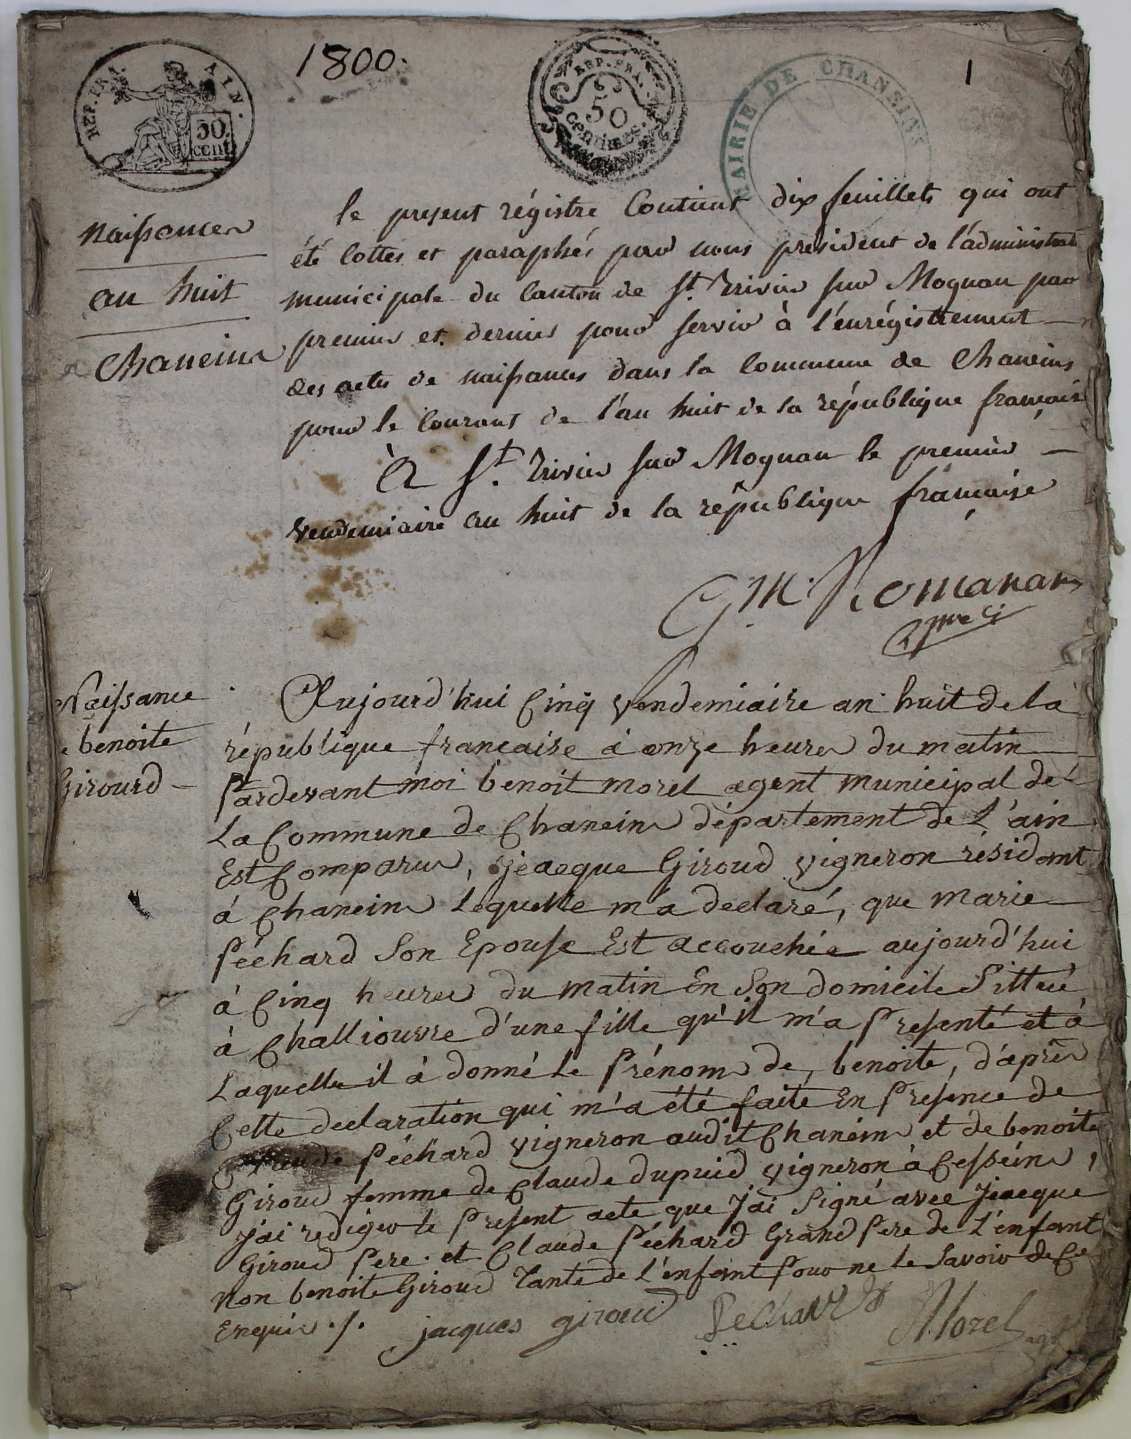 1800.
1
REP. FRA.
AIN.
50
cent.
REP. FRA.
50
centimes.
MAIRIE DE CHANEINS
Naissances
an huit
Chaneins
le present régistre Contient dix feuillets qui ont
été cottes et paraphés par nous president de l'administrat
municipale du Canton de St. Trivier sur Mognan par
premier et dernier pour servir à l'enrégistrement
des actes de naissances dans la Commune de Chaneins
pour le courant de l'an huit de la république française
à St. Trivier sur Mognan le premier
vendemiaire an huit de la république française
C. M. Romanans
Naissance
e benoite
Girourd
Aujourd'hui Cinq vendemiaire an huit de la
république francaise à onze heures du matin
Pardevant moi benoit morel agent municipal de
La Commune de Chaneins département de L'ain
Est Comparus, Jeacque Giroud vigneron résidant
à Chaneins Lequelle m'a declaré, que marie
Péchard Son Epouse Est accouchée aujourd'hui
à Cinq heures du matin En Son domicile Sittué
à Challiouvre d'une fille qu'il m'a Presenté et à
Laquelle il à donné Le Prénom de, benoite, d'après
Cette declaration qui m'a été faite En Presence de
Claude Péchard vigneron audit Chaneins et de benoite
Giroud femme de Claude dupuid vigneron à Cesseins,
j'ai rediger le Present acte que J'ai Signé avec Jeacque
Giroud Pere. et Claude Péchard Grand Pere de L'enfant
Non benoite Giroud Tante de L'enfant Pour ne le Savoir de Ce
Enquis ./.
jacques giroud
Pechard
Morel agt